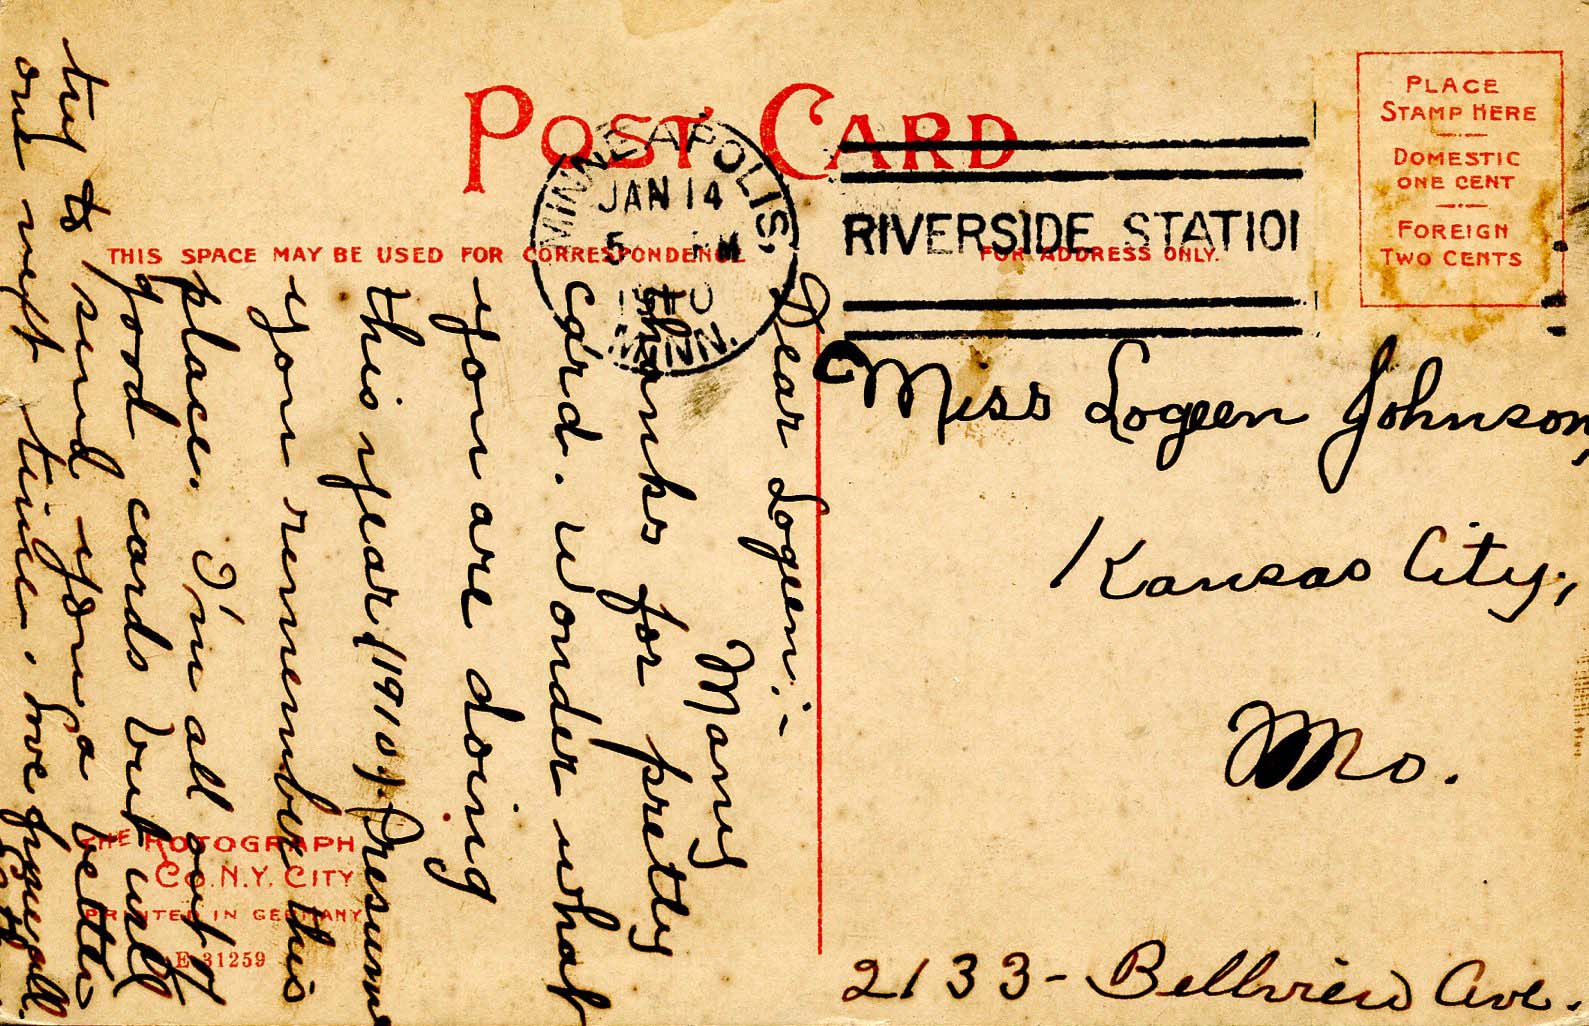 POST CARD
PLACE
STAMP HERE
DOMESTIC
ONE CENT
FOREIGN
TWO CENTS
MINNEAPOLIS,
JAN 14
5 PM
1910
MINN.
RIVERSIDE STATION
THIS SPACE MAY BE USED FOR CORRESPONDENCE
FOR ADDRESS ONLY.
Dear Logeen:-
Many
thanks for pretty
card. Wonder what
you are doing
this year (1910). Presume
you remember this
place. I'm all out of
good cards but will
try to send you a better
one next time. Love for you all.
Miss Logeen Johnson,
Kansas City,
Mo.
2133- Bellview Ave.
THE ROTOGRAPH
CO. N.Y. CITY
PRINTED IN GERMANY
E 31259